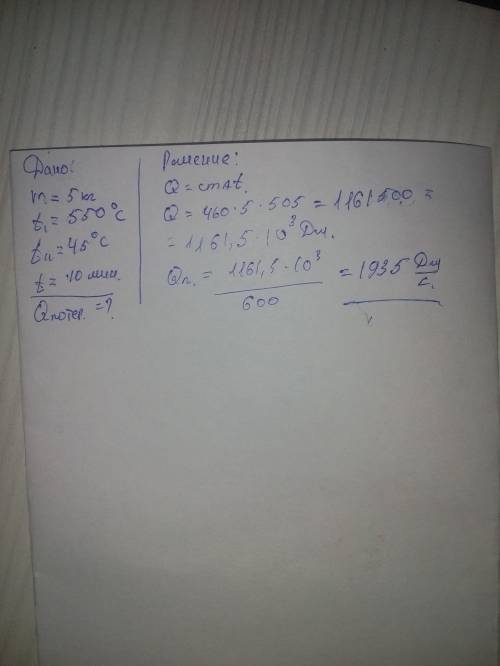 Дано:
m = 5 кг
t₁ = 550°C
t₂ = 45°C
t = 10 мин.
Qпотер. = ?
Решение:
Q = cmΔt.
Q = 460·5·505 = 1161500 =
= 1161,5·10³ Дж.
Qп. = 1161,5·10³ / 600 = 1935 Дж/с.